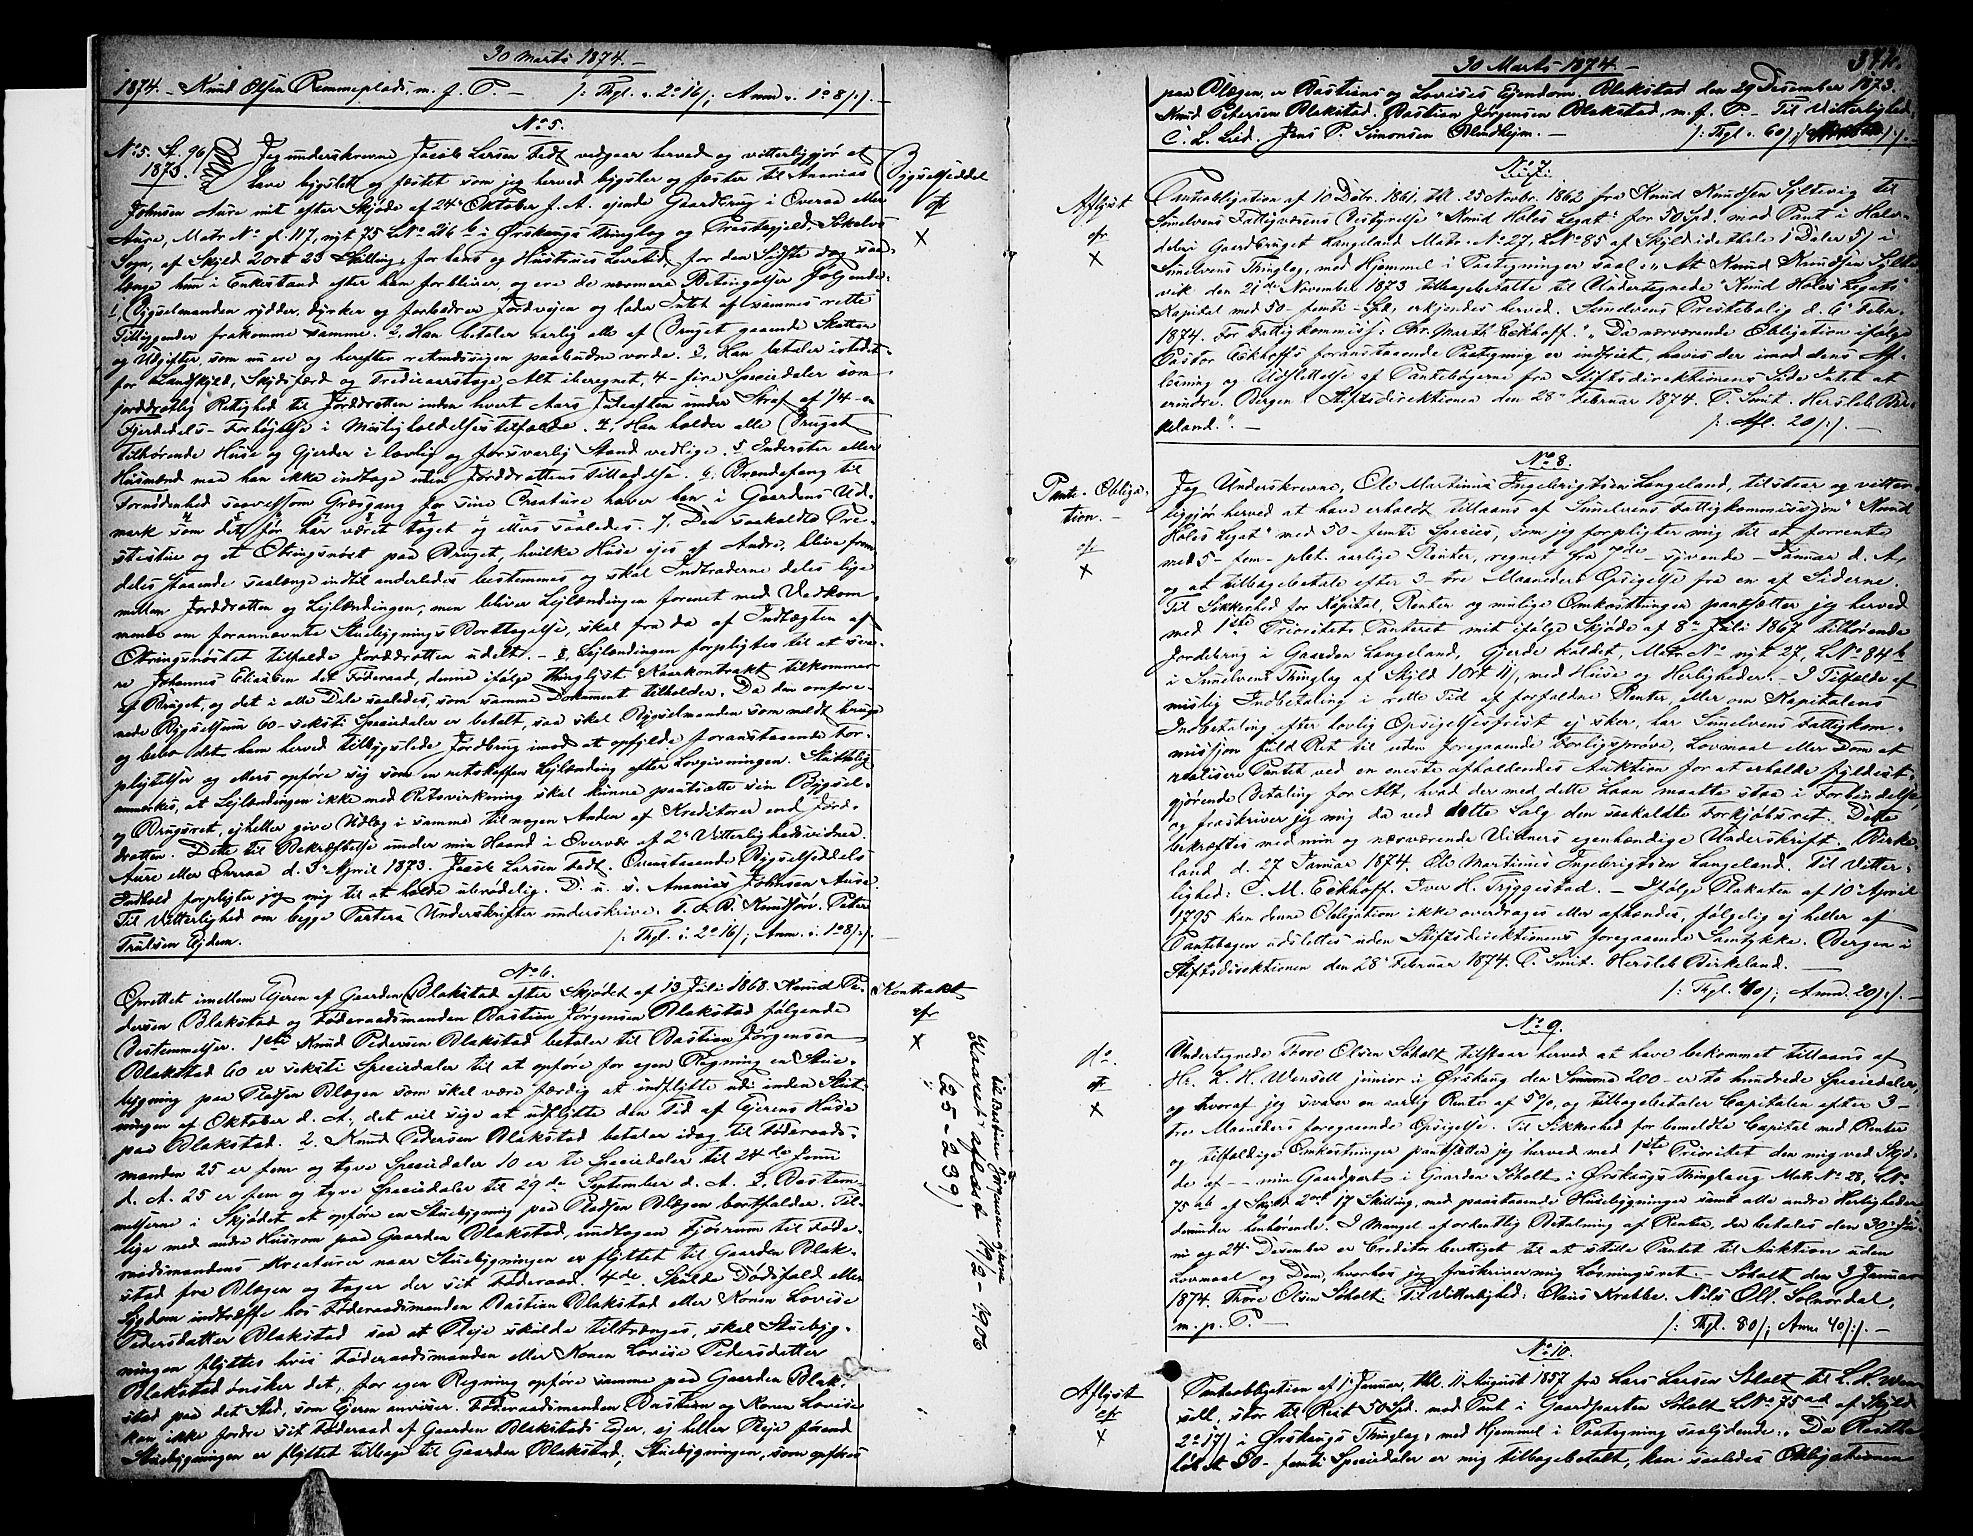 30 Marts 1874.
1874. Knud Olsen Remmeplads, m. f. P. — /: Thgl. 2 ort 16 /; Anm. 1 ort 8 /:/. —
No 5.
No 5. f. 96 Jeg underskrevne Jacob Larsen Fedt vedgaar herved og vitterliggjør at
1873. have bygslet og fæstet som jeg herved bygsler og fæster til Ananias
Bygselseddel
Johnsen Aure mit efter Skjøde af 24de Oktober f. A. ejende Gaardbrug i Overaa eller
Aure, Matr. No gl. 117, nyt 75 L No 216 b i Ørskougs Thinglag og Præstegjeld, Søkelvs
Sogn, af Skyld 2 ort 23 Skilling, for hans og Hustrues Levetid, for den Sidste dog saa-
længe hun i Enkestand efter ham forbliver, og ere de nærmere Betingelser følgende:
1, Bygselmanden rydder, dyrker og forbedrer Jordvejen og lader Intet af sammes rette
Tilliggender frakomme samme. 2. Han betaler aarlig alle af Bruget gaaende Skatter
og Udgifter, som nu ere og herefter retmæssigen paabudne vorde. 3. Han betaler istedet-
for Landskyld, Skydsfærd og Trediaarstage, Alt iberegnet, 4 - fire Speciedaler som
jorddrotlig Rettighed til Jorddrotten inden hvert Aars Juleaften under Straf af 1/4 - en
Fjerdedels - Forhøielse i Misligholdelsestilfælde. 4, Han holder alle Bruget
tilhørende Huse og Gjerder i lovlig og forsvarlig Stand vedlige. 5. Inderster eller
Husmænd maa han ikke indtage uden Jorddrottens Tilladelse. 6. Brændefang til
Fornødenhed saavelsom Græsgang for sine Creature haver han i Gaardens Ud-
mark som det før har været taget og ellers saaledes. 7. Den saakaldte Præ-
stestue og et Otringsnøst paa Bruget, hvilke Huse ejes af Andre, blive frem
deles staaende saalænge indtil anderledes bestemmes og skal Indtraderne deles lige
mellem Jorddrotten og Lejlændingen, men bliver Lejlændingen forenet med Vedkom-
mende om forannævnte Stuebygnings Borttagelse, skal fra da af Indtægten af
Otringsnøstet tilfalde Jorddrotten udelt. — 8. Lejlændingen forpligtes til at sva-
re Johannes Eliasen det Føderaad, denne ifølge thinglyst Kaarkontrakt tilkommer
af Bruget, og det i alle Dele saaledes, som samme Dokument tilholder. Da den omfore-
nede Bygselsum 60 - seksti Speciedaler er betalt, saa skal Bygselmanden som meldt bruge
og bebo det ham herved tilbygslede Jordbrug imod at opfylde foranstaaende For-
pligtelser og ellers opføre sig som en retskaffen Lejlænding efter Lovgivningen. Sluttelig
anmærkes, at Lejlændingen ikke med Retsvirkning skal kunne pantsætte sin Bygsel-
og Brugsret, ejheller give Udlæg i samme til nogen Anden af Kreditorer end Jord-
drotten. Dette til Bekræftelse under min Haand i Overvær af 2de Vitterlighedsvidner.
Aure eller Overaa d. 3 April 1873. Jacob Larsen Fedt. Ovenstaaende Bygselseddels
Indhold forpligter jeg mig til at holde ubrødelig. D. u. s. Ananias Johnsen Aure.
Til Vitterlighed om begge Parters Underskrifter underskrive. T. R. B. Knudsøn. Peter
Trulsen Ejdem. /: Thgl. i: 2 ort 16 /; Anm. i. 1 ort 8 /:/. —
No 6.
Oprettet imellem Ejeren af Gaarden Blakstad efter Skjødet af 13 Juli 1868. Knud Pe-
Kontrakt
dersen Blakstad og Føderaadsmanden Bastian Jørgensen Blakstad følgende
Bestemmelser. 1ste Knud Pedersen Blakstad betaler til Bastian Jørgensen
Blakstad 60 er seksti Speciedaler til at opføre for egen Regning en Stue-
bygning paa Pladsen Blægen som skal være færdig at indflytte udi inden Slut-
ningen af Oktober d. A. det vil sige at udflytte den Tid af Ejerens Huse
paa Blakstad. 2. Knud Pedersen Blakstad betaler idag til Føderaads-
manden 25 er fem og tyve Speciedaler 10 er ti Speciedaler til 24de Juni
d. A. 25 er fem og tyve Speciedaler til 29de September d. A. 3. Bestem-
melserne i Skjødet at opføre en Stuebygning paa Pladsen Blægen bortfalder. Til-
lige med andre Husrom paa Gaarden Blakstad, undtagen Fjøsrum til Føde-
raadsmandens Kreaturer naar Stuebygningen er flyttet til Gaarden Blak-
stad fra Blægen og tager der sit Føderaad. 4de. Skulde Dødsfald eller
Sygdom indtræffe hos Føderaadsmanden Bastian Blakstad eller Konen Lovise
Pedersdatter Blakstad saa at Pleje skulde tiltrænges, skal Stuebyg-
ningen flyttes hvis Føderaadsmanden eller Konen Lovise Pedersdatter
Blakstad ønsker det, for egen Regning opføre samme paa Gaarden Blak-
stad paa det Sted som Ejeren anviser. Føderaadsmanden Bastian og Konen Lovise
kan ikke fordre sit Føderaad af Gaarden Blakstads Ejer, ej heller Pleje førend
Stuebygningen er flyttet tilbage til Gaarden Blakstad; Stuebygningen, som opføres
Kaaret aflæst 10/2 - 1906
til Bastian Jørgensen
(25-239)
30 Marts 1874.
372.
paa Blægen, er Bastians og Lovises Ejendom. Blakstad den 29 Desember 1873.
Knud Petersen Blakstad. Bastian Jørgensen Blakstad, m. f. P. — Til Vitterlighed,
C. L. Lied. Jens P. Simonsen Blindhejm. — /: Thgl. 60 /;
No 7.
Aflyst
Pantobligation af 10 Dcbr. 1861, thl. 25 Novbr. 1862 fra Knud Knudsen Syltevig til
Sunelvens Fattigvæsens Bestyrelse "Knud Holes Legat" for 50 Spd, mod Pant i Halv-
delen i Gaardbruget Langeland Matr. No 27, L No 85 af Skyld i det hele 1 Daler 5 / i
Sunelvens Thinglag, med Hjemmel i Paategninger saal.: "At Knud Knudsen Sylte-
vik den 21de November 1873 tilbagebetalte til Undertegnede "Knud Holes Legats"
Kapital med 50 - femti - Spd, erkjendes herved. Sunelvens Præstebolig d. 6te Febr.
1874. For Fattigkommiss: Chr. Marts Eckhoff." "Da nærværende Obligation ifølge
Pastor Eckhoffs foranstaaende Paategning er indfriet, haves der imod dens Af-
løsning og Udslettelse af Pantebøgerne fra Stiftsdirektionens Side Intet at
erindre. Bergen i Stiftsdirektionen den 28de Februar 1874. P. Smit. Hersleb Bir-
keland." — /: Afl. 20 /:/. —
No 8.
Pante-Obliga-
tion. —
Jeg Underskrevne, Ole Martinus Ingebrigtsen Langeland, tilstaar og vitter-
liggjør herved at have erholdt tillaans af Sunelvens Fattigkommission "Knud
Holes Legat" med 50 - femti Species, som jeg forpligter mig til at forrente
med 5 - fem - plct. aarlige Renter, regnet fra 7de - syvende - Januar d. A,
og at tilbagebetale efter 3 - tre Maaneders Opsigelse fra en af Siderne.
Til Sikkerhed for Kapital, Renter og mulige Omkostninger pantsætter jeg herved
med 1ste Prioritets Panteret mit ifølge Skjøde af 8de Juli 1867 tilhørende
Jordebrug i Gaarden Langeland, Gjerde kaldet, Matr No nyt 27, L No 84 b
i Sunelvens Thinglag af Skyld 1 ort 11 /, med Huse og Herligheder. — I Tilfælde af
mislig Indbetaling i rette Tid af forfaldne Renter, eller om Kapitalens
Indbetaling efter lovlig Opsigelsesfrist ej sker, har Sunelvens Fattigkom-
mission fuld Ret til uden foregaaende Forligsprøve, Lovmaal eller Dom at
realisere Pantet ved en eneste afholdendes Auktion for at erholde fyldest-
gjørende Betaling for Alt, hvad der med dette Laan maatte staa i Forbindelse
og fraskriver jeg mig da ved dette Salg den saakaldte Forkjøbsret. Dette
bekræftes med min og nærværende Vidners egenhændige Underskrift. Birke-
land d. 27 Januar 1874. Ole Martinus Ingebrigtsen Langeland. Til Vitter-
lighed: C. M. Eckhoff. Iver H. Tryggestad. — Ifølge Plakaten af 10de April
1795 kan denne Obligation ikke overdrages eller afhændes, følgelig ej heller af
Pantebogen udslettes uden Stiftsdirektionens foregaaende Samtykke. Bergen i
Stiftsdirektionen den 28de Februar 1874. P. Smit. Hersleb Birkeland. —
/: Thgl. 40 /; Anm. 20 /:/. —
No 9.
do.
Undertegnede Thore Olsen Scholt tilstaar herved at have bekommet tillaans af
Hr. L. H. Wensell junior i Ørskoug den Summa 200 - er to hundrede Speciedaler,
og hvoraf jeg svarer en aarlig Rente af 5 %, og tilbagebetaler Capitalen efter 3 -
tre Maaneders foregaaende Opsigelse. Til Sikkerhed for bemeldte Capital med Renter
og tilfældige Omkostninger pantsætter jeg herved med 1ste Prioritet den mig ved Skjø-
de af — — min Gaardpart i Gaarden Scholt i Ørskougs Thinglaug Matr No 28, L No
75 ab af Skyld 2 ort 17 Skilling, med paastaaende Husebygninger samt alle andre Herligheder
derunder henhørende. I Mangel af ordentlig Betaling af Renter, der betales den 30te Ju-
ni og 24 Desember er Creditor berettiget til at stille Pantet til Auktion uden
Lovmaal og Dom, hvorhos jeg fraskriver mig Løsningsret. — Scholt den 3 Januar
1874. Thore Olsen Scholt. Til Vitterlighed: Claus Krabbe. Nils Oll. Solnørdal,
m. p. P. — /: Thgl. 80 /; Anm 40 /:/. —
No 10.
Aflyst
Pantobligation af 1 Januar, thl. 11 August 1857 fra Lars Larsen Scholt til L. H. Wen-
sell, stor til Rest 50 Spd. mod Pant i Gaardparten Scholt L No 75 ad af Skyld
2 ort 17 / i Ørskougs Thinglag, med Hjemmel i Paategning saalydende: "Da Restbe-
løbet 50 - femti Speciedaler er mig tilbagebetalt, kan saaledes Obligationen